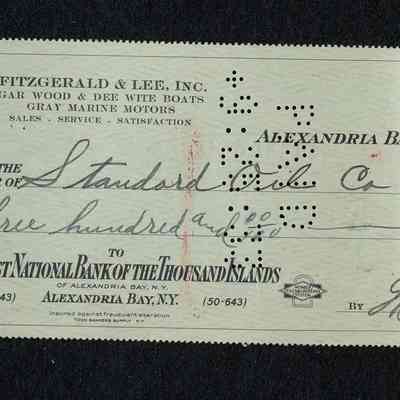 FITZGERALD & LEE, INC.
GAR WOOD & DEE WITE BOATS
GRAY MARINE MOTORS
SALES - SERVICE - SATISFACTION
ALEXANDRIA BA
THE
OF Standard Oil Co
hree hundred and 00/100
TO
ST NATIONAL BANK OF THE THOUSAND ISLANDS
OF ALEXANDRIA BAY, N.Y.
643) ALEXANDRIA BAY, N.Y. (50-643)
BY
Insured against fraudulent alteration
PAID